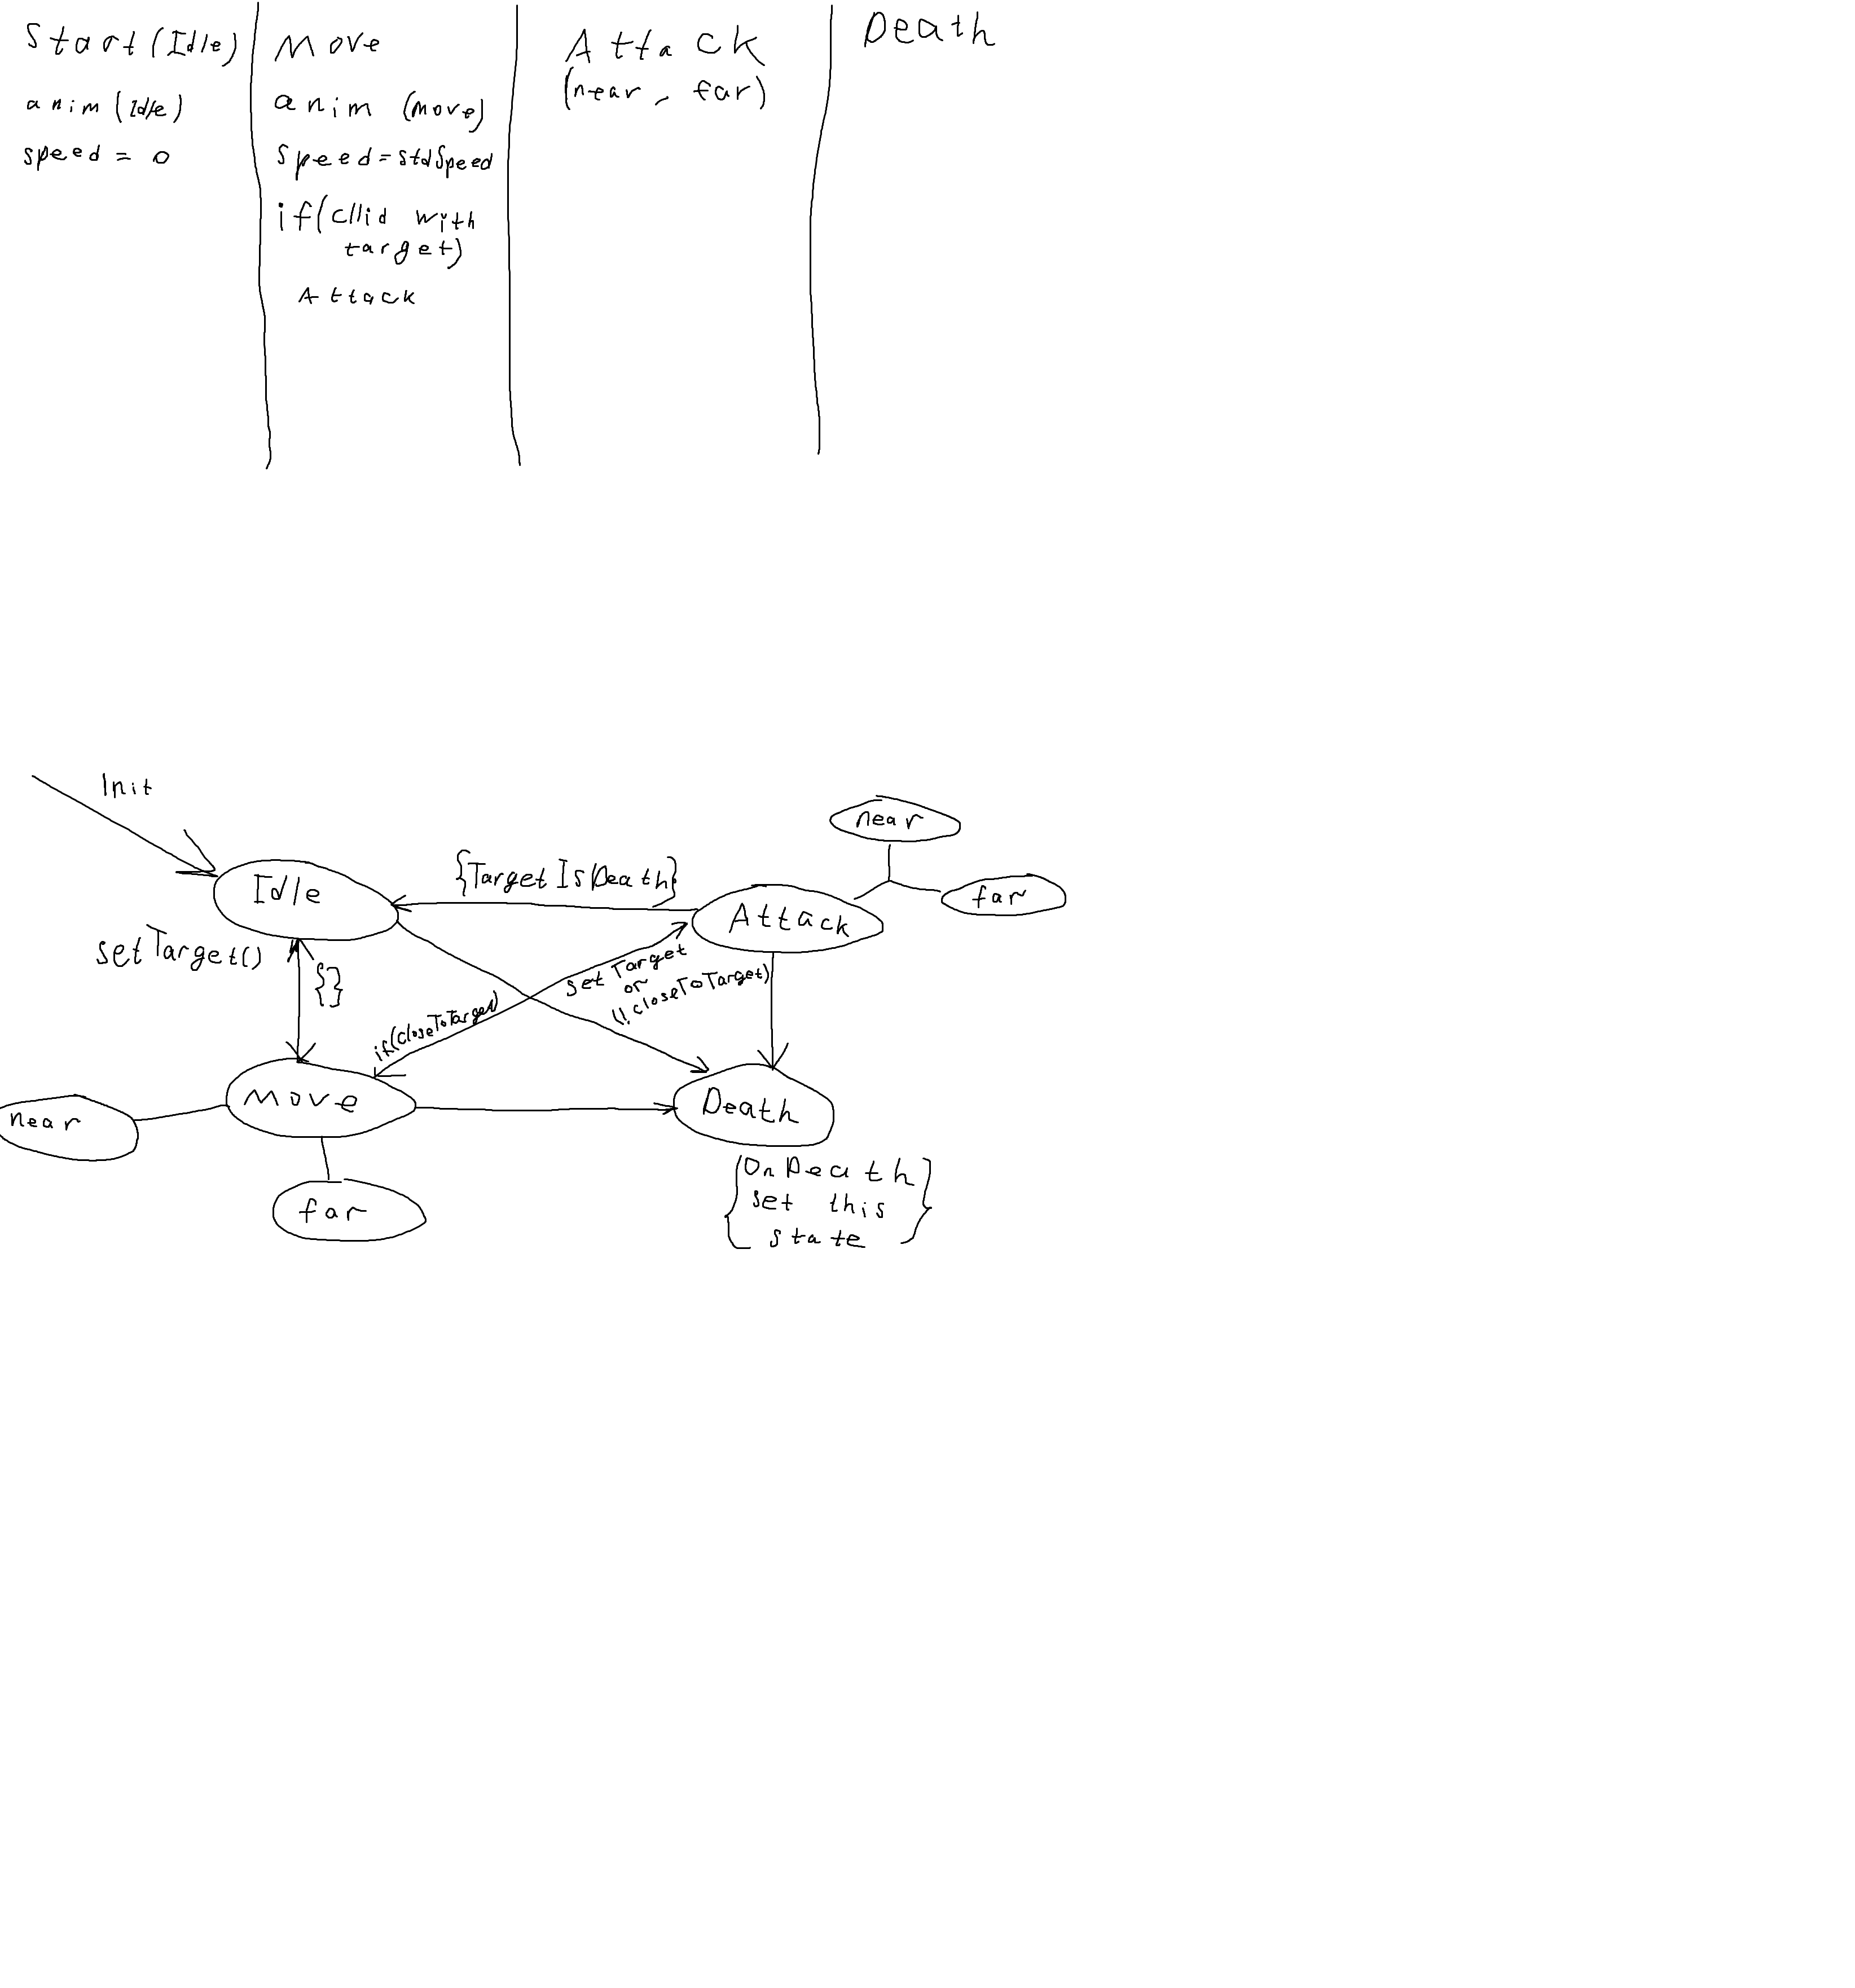 Start(Idle)
anim(Idle)
speed = 0
Move
anim (move)
Speed=stdSpeed
if(cllid with
target)
Attack
Attack
(near, far)
Death
Init
Idle
{TargetIsDeath}
Attack
near
far
setTarget()
{}
if(closeToTarget)
set Target
or
(!closeToTarget)
Move
near
far
Death
{OnDeath
set this
state}